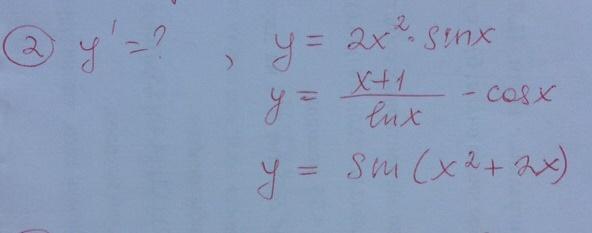 ② y' = ? , y = 2x² · sinx
y = (x+1)/(lnx) - cosx
y = sin(x² + 2x)